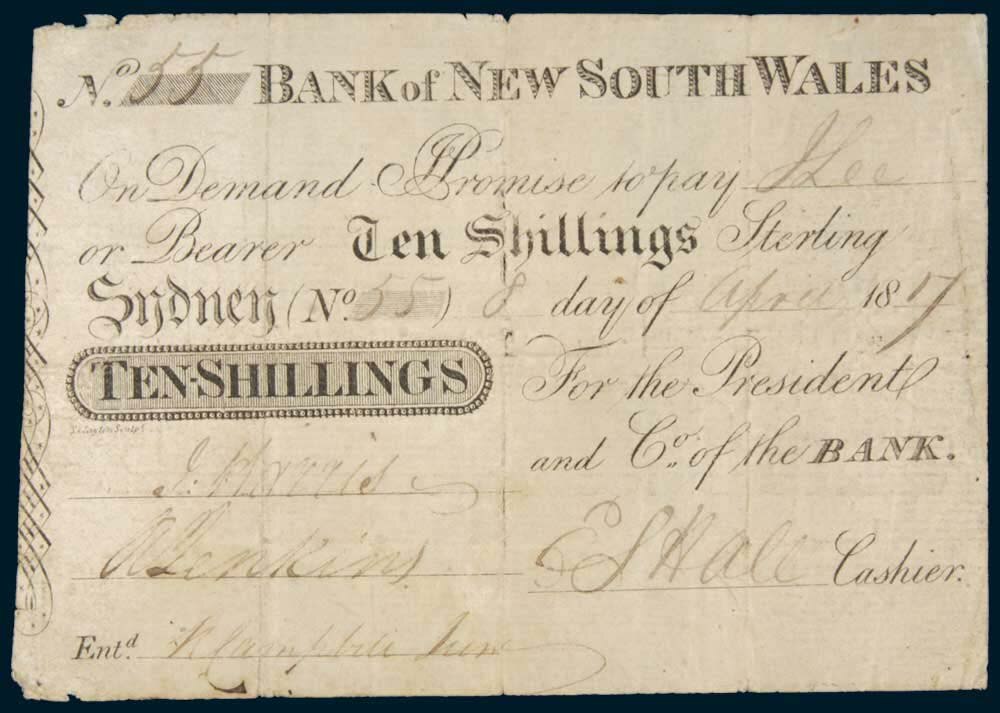 No. 55 BANK of NEW SOUTH WALES
On Demand I Promise to pay J Lee
or Bearer Ten Shillings Sterling
Sydney (No. 55) 8 day of April 1817
TEN-SHILLINGS
For the President
and Co. of the BANK.
J. Harris
R Jenkins
E S Hall Cashier.
Entd. R Campbell Junr